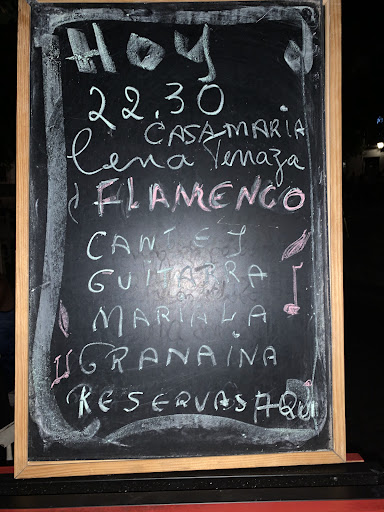 HOY
22.30
CASA MARIA
Cena Terraza
FLAMENCO
CANTE Y
GUITARRA
MARIA LA
GRANAINA
RESERVAS AQUI